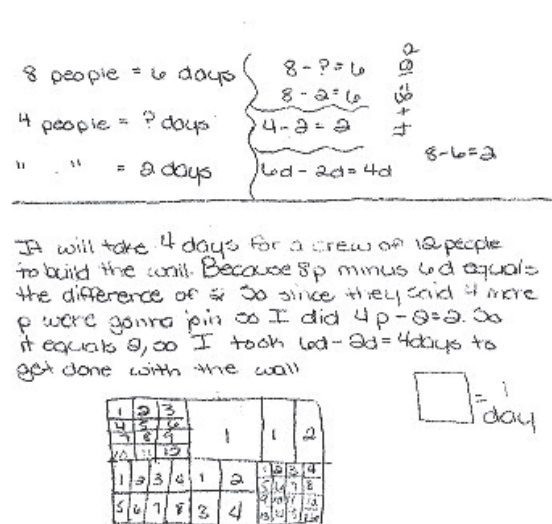 8 people = 6 days
4 people = ? days
" . " = 2 days
8 - ? = 6
8 - 2 = 6
4 - 2 = 2
6d - 2d = 4d
4 + 8 = 12
8-6=2
It will take 4 days for a crew of 12 people
to build the wall. Because 8p minus 6d equals
the difference of 2 So since they said 4 more
p were gonna join so I did 4p - 2=2. So
it equals 2, so I took 6d - 2d = 4days to
get done with the wall
= 1 day
1 2 3
4 5 6
7 8 9
10 11 12
1
1 2
1 2 3 4
5 6 7 8
1 2
3 4
1 2 3 4
5 6 7 8
9 10 11 12